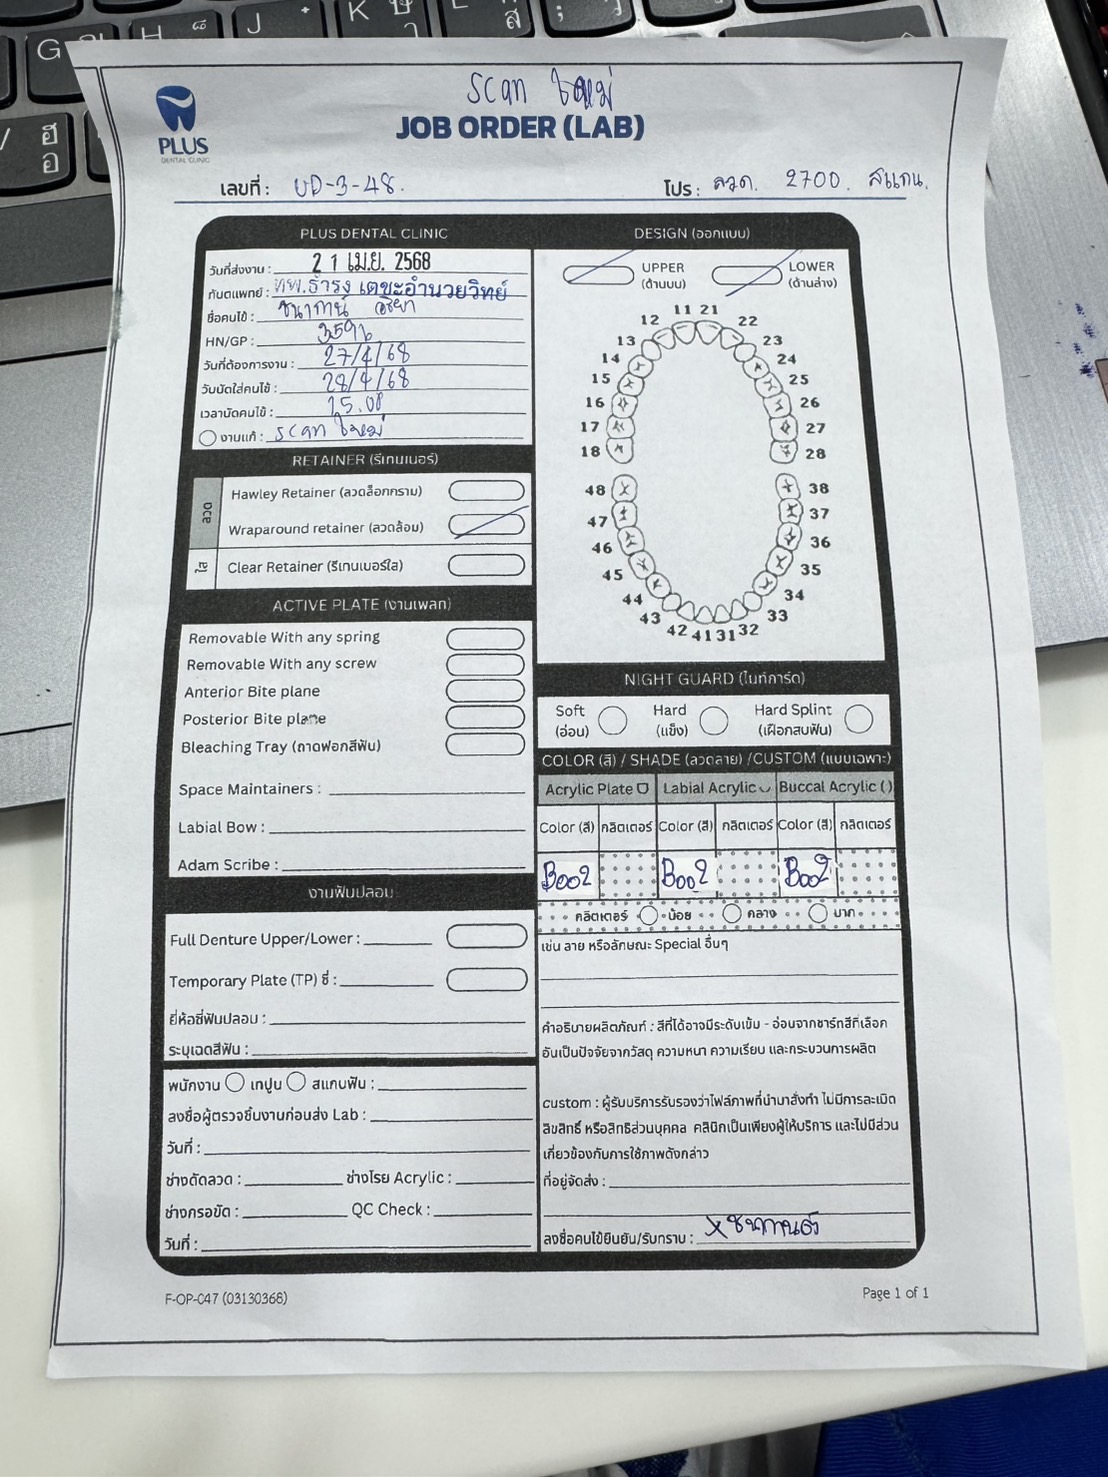 scan ใหม่
PLUS
DENTAL CLINIC
JOB ORDER (LAB)
เลขที่ : UD-3-48.
โปร : ลวด. 2700. สแกน.
PLUS DENTAL CLINIC
วันที่ส่งงาน : 21 เม.ย. 2568
ทันตแพทย์ : ทพ.ธำรง เตชะอำนวยวิทย์
ชื่อคนไข้ : ชนากานต์
HN/GP :
วันที่ต้องการงาน : 27/4/68
วันนัดใส่คนไข้ : 28/4/68
เวลานัดคนไข้ : 15.00
งานแก้ : scan ใหม่
RETAINER (รีเทนเนอร์)
ลวด
Hawley Retainer (ลวดล็อกกราม)
Wraparound retainer (ลวดล้อม)
ใส
Clear Retainer (รีเทนเนอร์ใส)
ACTIVE PLATE (งานเพลท)
Removable With any spring
Removable With any screw
Anterior Bite plane
Posterior Bite plane
Bleaching Tray (ถาดฟอกสีฟัน)
Space Maintainers :
Labial Bow :
Adam Scribe :
งานฟันปลอม
Full Denture Upper/Lower :
Temporary Plate (TP) ซี่ :
ยี่ห้อซี่ฟันปลอม :
ระบุเฉดสีฟัน :
พนักงาน เทปูน สแกนฟัน :
ลงชื่อผู้ตรวจชิ้นงานก่อนส่ง Lab :
วันที่ :
ช่างดัดลวด : ช่างโรย Acrylic :
ช่างกรอขัด : QC Check :
วันที่ :
DESIGN (ออกแบบ)
UPPER
(ด้านบน)
LOWER
(ด้านล่าง)
11 21
12 22
13 23
14 24
15 25
16 26
17 27
18 28
48 38
47 37
46 36
45 35
44 34
43 33
42 41 31 32
NIGHT GUARD (ไนท์การ์ด)
Soft
(อ่อน)
Hard
(แข็ง)
Hard Splint
(เฝือกสบฟัน)
COLOR (สี) / SHADE (ลวดลาย) /CUSTOM (แบบเฉพาะ)
Acrylic Plate Labial Acrylic Buccal Acrylic ()
Color (สี) กลิตเตอร์ Color (สี) กลิตเตอร์ Color (สี) กลิตเตอร์
B002 B002 B002
กลิตเตอร์ น้อย กลาง มาก
เช่น ลาย หรือลักษณะ Special อื่นๆ
คำอธิบายผลิตภัณฑ์ : สีที่ได้อาจมีระดับเข้ม - อ่อนจากชาร์ทสีที่เลือก
อันเป็นปัจจัยจากวัสดุ ความหนา ความเรียบ และกระบวนการผลิต
custom : ผู้รับบริการรับรองว่าไฟล์ภาพที่นำมาสั่งทำ ไม่มีการละเมิด
ลิขสิทธิ์ หรือสิทธิส่วนบุคคล คลินิกเป็นเพียงผู้ให้บริการ และไม่มีส่วน
เกี่ยวข้องกับการใช้ภาพดังกล่าว
ที่อยู่จัดส่ง :
ลงชื่อคนไข้ยืนยัน/รับทราบ : x ชนากานต์
F-OP-047 (03130368)
Page 1 of 1